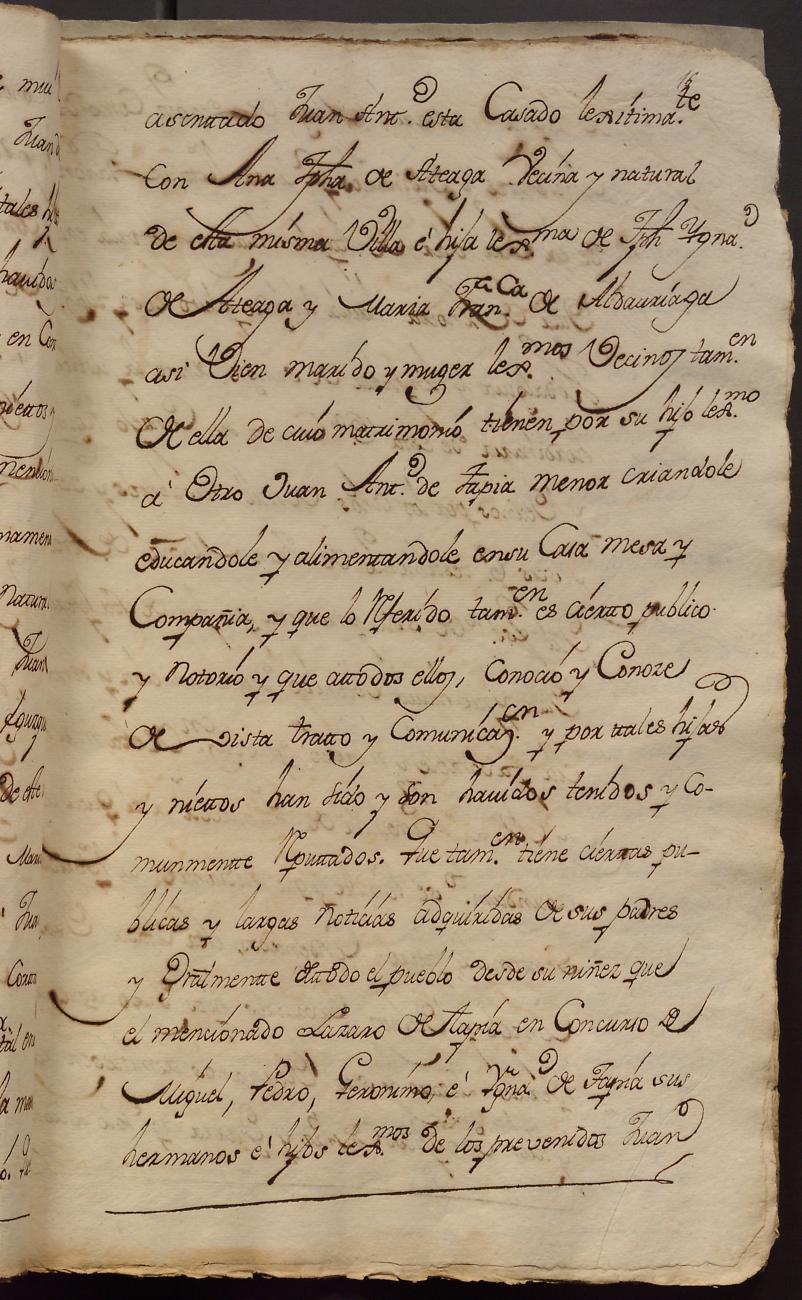 asenttado Juan Antº. esta Casado lexítima.te
Con Ana Jpha de Ateaga Vecína y natural
de esta mísma Villa é hija lex.ma de Jph Ygnaº.
de Ateaga y Maria Fran.ca de Aldauríaga
asi Vien marído y muger lex.mos Vecinos tam.en
de ella de cuío matrimonío tíenen por su hijo lex.mo
á Otro Juan Antº. de Tapia menor criandole
educandole y alimentandole ensu Casa mesa y
Compañia, y que lo Referído tam.en es cíertto publico
y Notorío y que attodos ellos, Conocío y Conoze
de vista tratto y Comunícaz.on y por ttales híjos
y níettos han sido y son havídos tenídos y Co-
munmentte Reputtados. Que tam.en tíene cíerttas pu-
blícas y largas notícías adquirídas de sus padres
y Gralmentte de ttodo el pueblo desde su niñez que
el mencíonado Lazaro de Tapía en Concurso de
Míguel, Pedro, Geronímo, é Ygnaº de Tapía sus
hermanos é híjos lex.mos de los prevenídos Juan